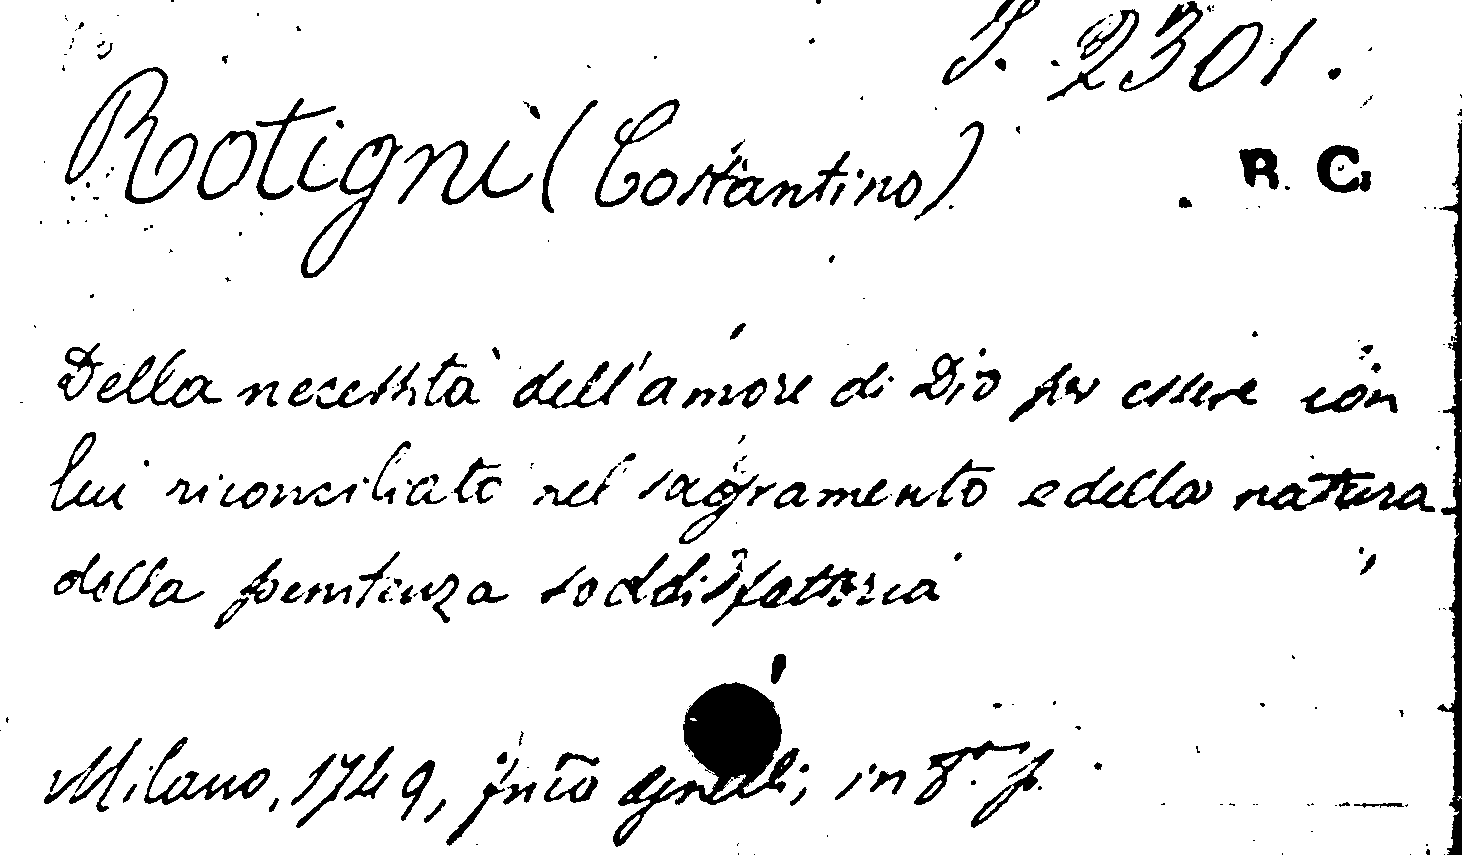 J. 2301.
Rotigni (Costantino)
R. C.
Della necessità dell'amore di Dio per essere con
lui riconciliato nel sagramento e della natura
della penitenza soddisfattoria
Milano, 1749, Agnelli, in 8.° p.